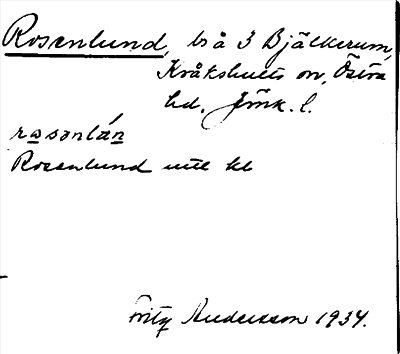 Rosenlund, bs å 3 Bjälkerum,
Kråkshults sn, Östra
hd. Jönk. l.
rosənlún
Rosenlund utt kl
Fritz Andersson 1934.